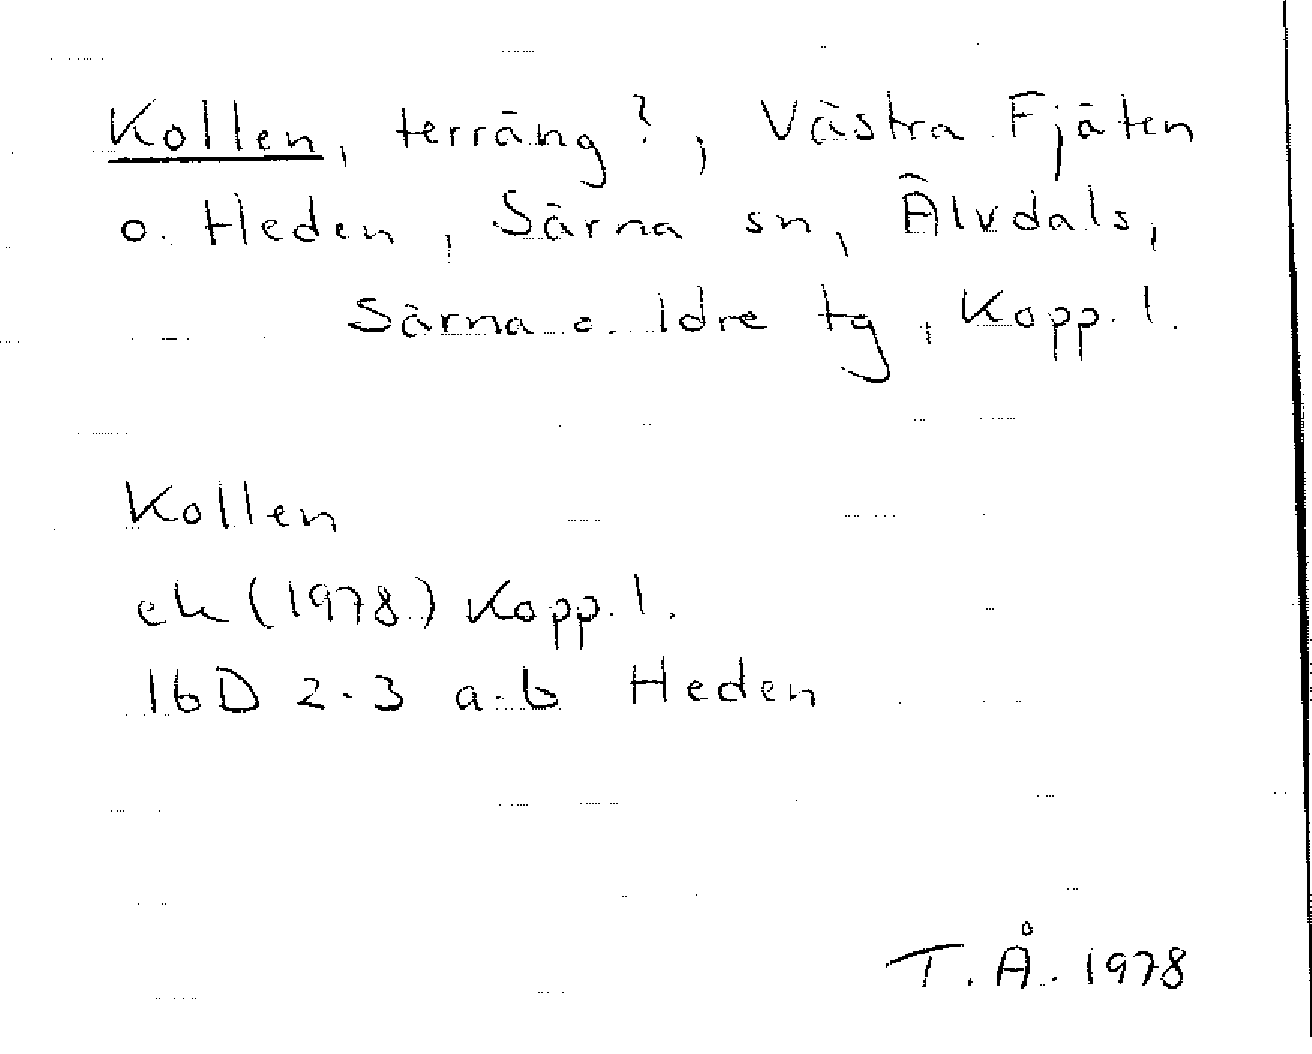 Kollen, terräng?, Västra Fjäten
o. Heden, Särna sn, Älvdals,
Särna o. Idre tg, Kopp. l.
Kollen
ek (1978) Kopp. l.
16D 2-3 a-b Heden
T. Å. 1978